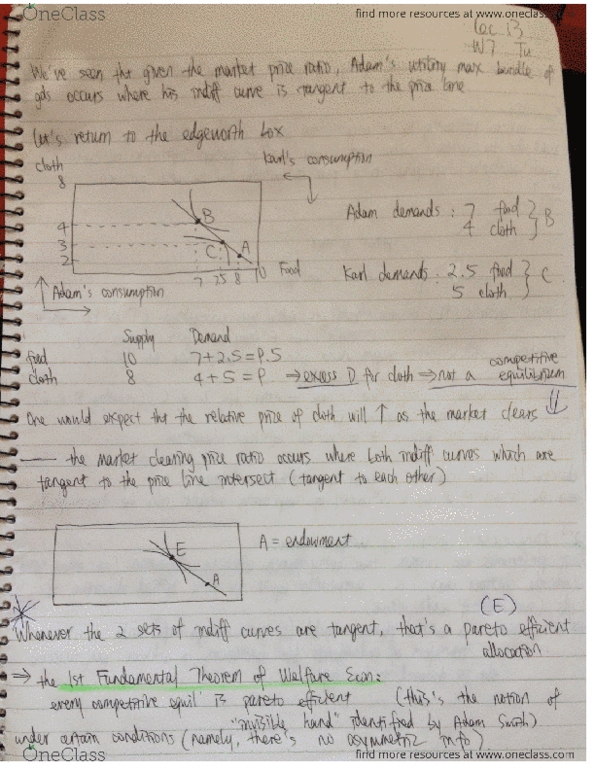 OneClass
find more resources at www.oneclass.com
Lec 13
W7 Tu
We've seen tht given the market price ratio, Adam's utility max bundle of
gds occurs where his indiff curve is tangent to the price line
Let's return to the edgeworth box
cloth
Karl's consumption
8
B
Adam demands : 7 food } B
4
4 cloth
3
C
A
2
7 7.5 8 10 Food
Karl demands : 2.5 food } C
5 cloth
Adam's consumption
Supply Demand
food 10 7+2.5=9.5
cloth 8 4+5=9 → excess D for cloth ⇒ not a competitive equilibrium
One would expect tht the relative price of cloth will ↑ as the market clears
the market clearing price ratio occurs where both indiff curves which are
tangent to the price line intersect (tangent to each other)
E
A
A = endowment
(E)
Whenever the 2 sets of indiff curves are tangent, that's a pareto efficient
allocation
⇒ the 1st Fundamental Theorem of Welfare Econ:
every competitive equil is pareto efficient (this's the notion of
"invisible hand" identified by Adam Smith)
under certain conditions (namely, there's no asymmetric info)
OneClass
find more resources at www.oneclass.com